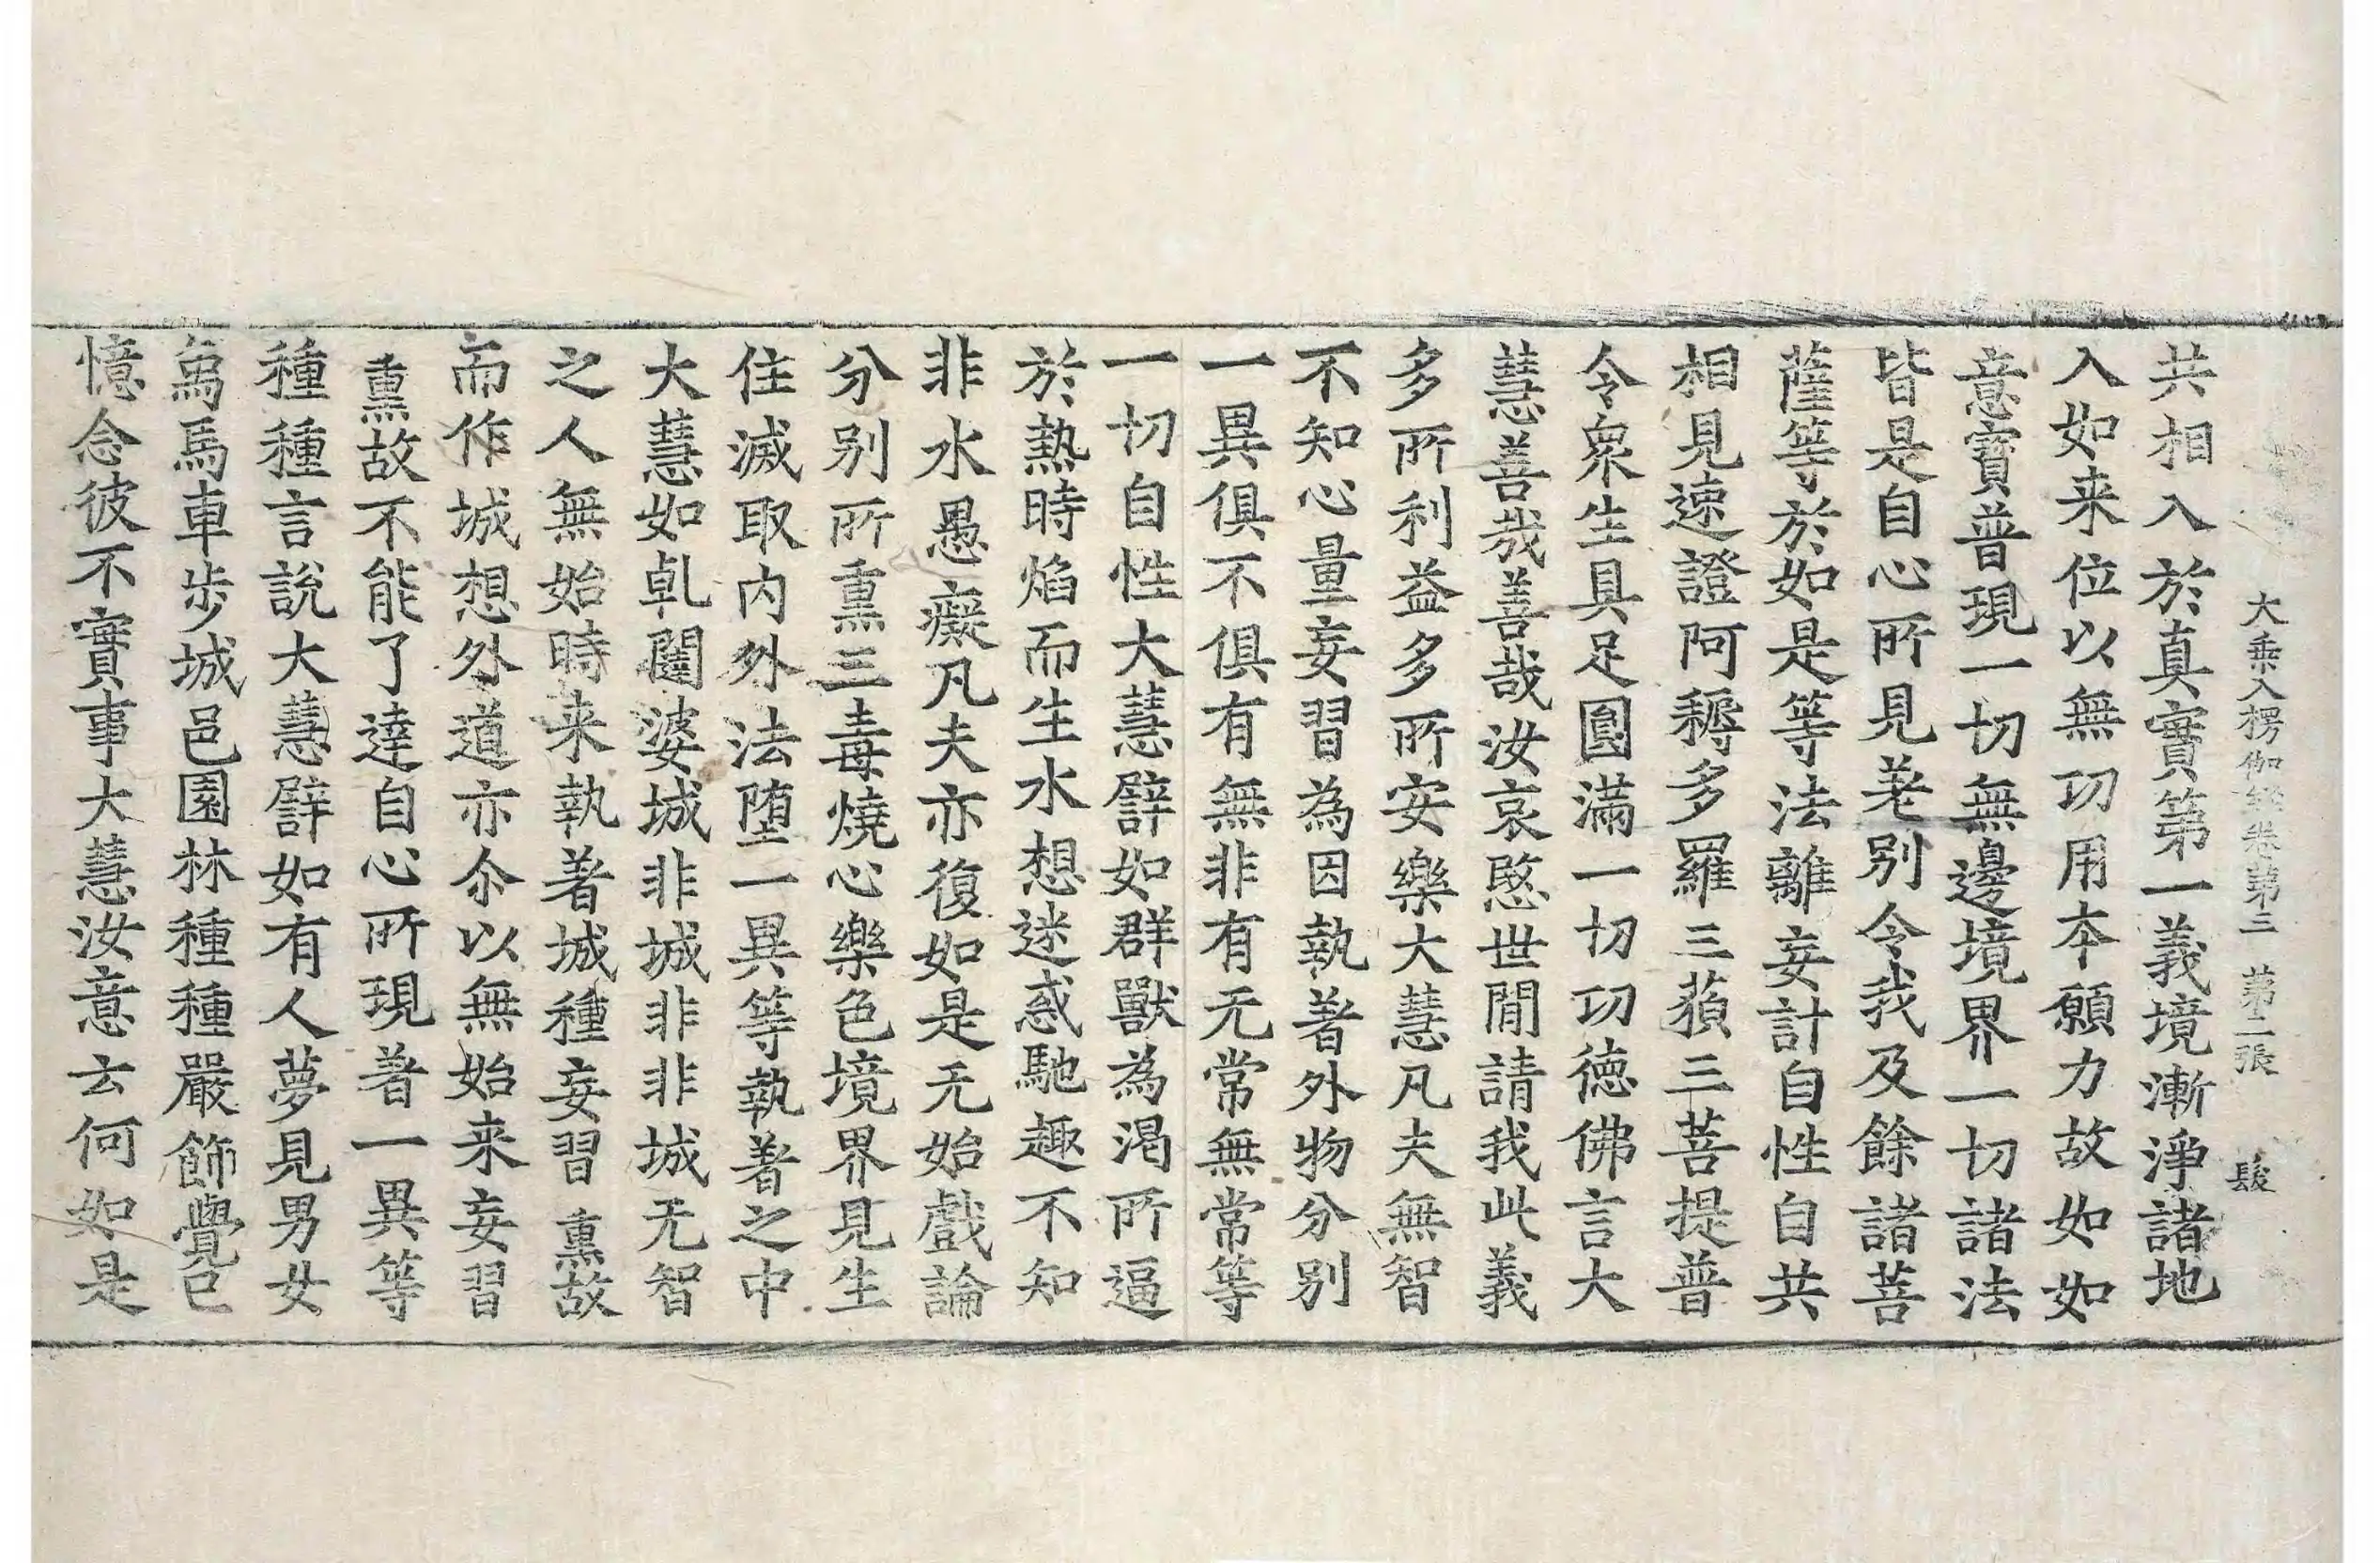 大乗入楞伽經卷第三　第二張　髮
共相入於真實第一義境漸淨諸地
入如来位以無功用本願力故如如
意寶普現一切無邊境界一切諸法
皆是自心所見差別令我及餘諸菩
薩等於如是等法離妄計自性自共
相見速證阿耨多羅三藐三菩提普
令衆生具足圓滿一切功德佛言大
慧善哉善哉汝哀愍世閒請我此義
多所利益多所安樂大慧凡夫無智
不知心量妄習為因執著外物分別
一異俱不俱有無非有无常無常等
一切自性大慧譬如群獸為渴所逼
於熱時焰而生水想迷惑馳趣不知
非水愚癡凡夫亦復如是无始戲論
分別所熏三毒燒心樂色境界見生
住滅取內外法墮一異等執著之中
大慧如乹闥婆城非城非非城无智
之人無始時来執著城種妄習熏故
而作城想外道亦尒以無始来妄習
熏故不能了達自心所現著一異等
種種言說大慧譬如有人夢見男女
象馬車步城邑園林種種嚴飾覺已
憶念彼不實事大慧汝意云何如是